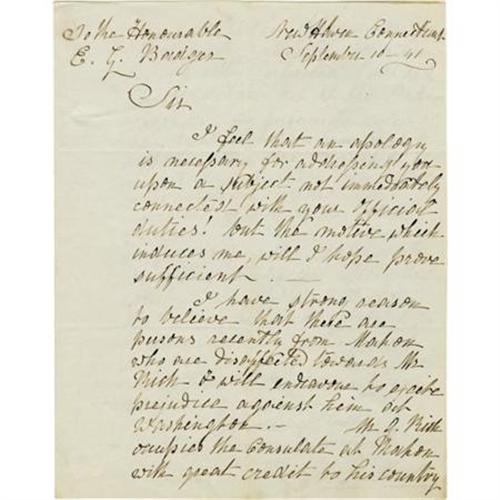 To the Honourable
E. G. Badger
New Haven Connecticut
September 10 - 41
Sir
I feel that an apology
is necessary for addressing you
upon a subject not immediately
connected with your official
duties! but the motive which
induces me, will I hope prove
sufficient. —
I have strong reason
to believe that there are
persons recently from Mahon
who are disaffected towards Mr
Rich & will endeavour to excite
prejudice against him at
Washington. — Mr O. Rich
occupies the Consulate at Mahon
with great credit to his country